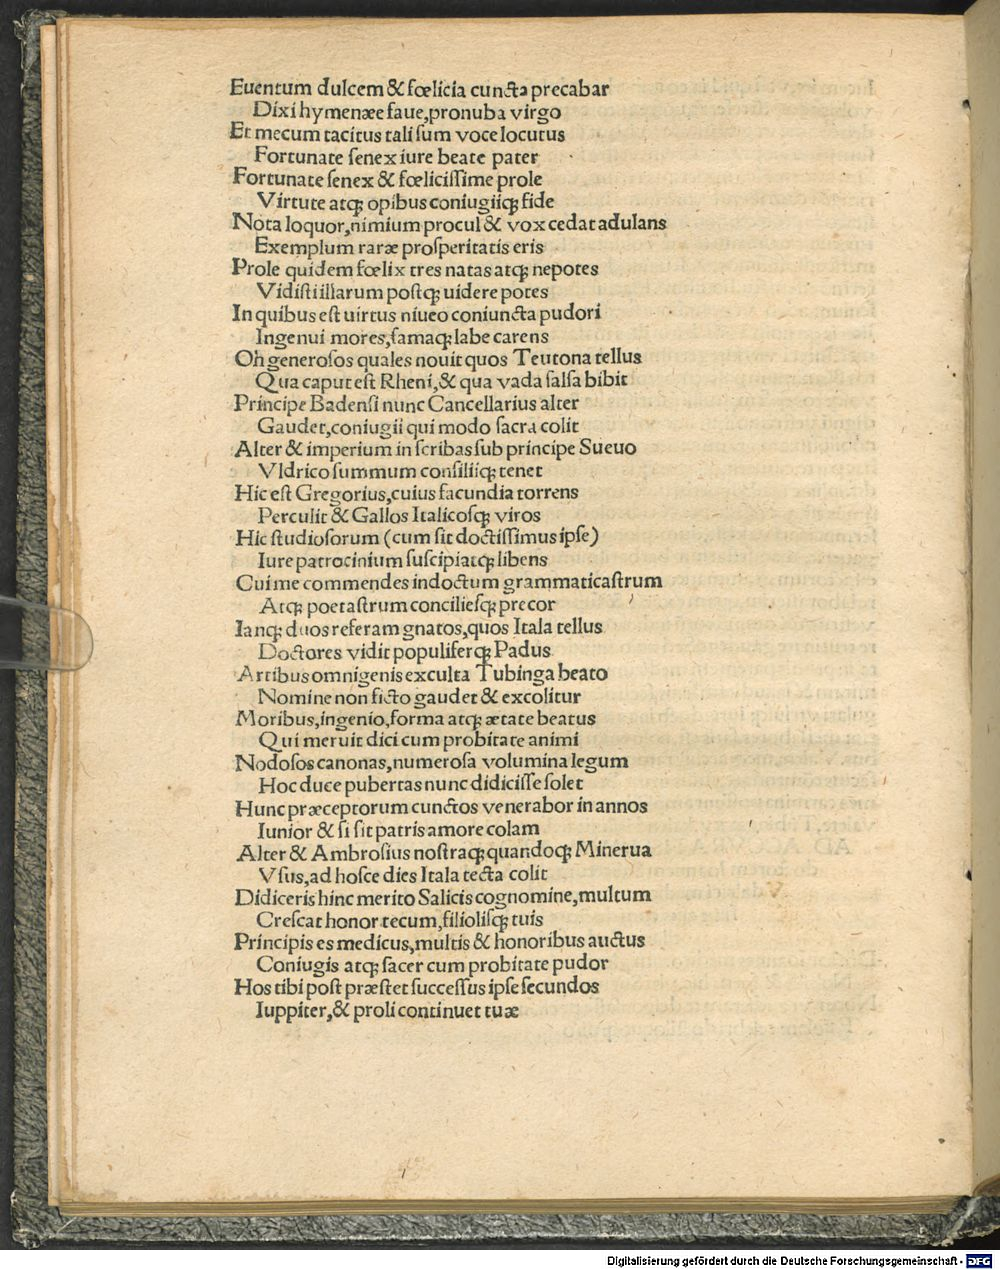 Euentum dulcem & fœlicia cuncta precabar
Dixi hymenæe faue, pronuba virgo
Et mecum tacitus tali sum voce locutus
Fortunate senex iure beate pater
Fortunate senex & fœlicissime prole
Virtute atqꝫ opibus coniugiiqꝫ fide
Nota loquor, nimium procul & vox cedat adulans
Exemplum raræ prosperitatis eris
Prole quidem fœlix tres natas atqꝫ nepotes
Vidisti illarum postqꝫ uidere potes
In quibus est uirtus niueo coniuncta pudori
Ingenui mores, famaqꝫ labe carens
Oh generosos quales nouit quos Teutona tellus
Qua caput est Rheni, & qua vada salsa bibit
Principe Badensi nunc Cancellarius alter
Gaudet, coniugii qui modo sacra colit
Alter & imperium in scribas sub principe Sueuo
Vldrico summum consiliiqꝫ tenet
Hic est Gregorius, cuius facundia torrens
Perculit & Gallos Italicosqꝫ viros
Hic studiosorum (cum sit doctissimus ipse)
Iure patrocinium suscipiatqꝫ libens
Cui me commendes indoctum grammaticastrum
Atqꝫ poetastrum conciliesqꝫ precor
Ianqꝫ duos referam gnatos, quos Itala tellus
Doctores vidit populiferqꝫ Padus
Artibus omnigenis exculta Tubinga beato
Nomine non ficto gaudet & excolitur
Moribus, ingenio, forma atqꝫ ætate beatus
Qui meruit dici cum probitate animi
Nodosos canonas, numerosa volumina legum
Hoc duce pubertas nunc didicisse solet
Hunc præceptorum cunctos venerabor in annos
Iunior & si sit patris amore colam
Alter & Ambrosius nostraqꝫ quandoqꝫ Minerua
Vsus, ad hosce dies Itala tecta colit
Didiceris hinc merito Salicis cognomine, multum
Crescat honor tecum, filiolisqꝫ tuis
Principis es medicus, multis & honoribus auctus
Coniugis atqꝫ sacer cum probitate pudor
Hos tibi post præstet successus ipse secundos
Iuppiter, & proli continuet tuæ
Digitalisierung gefördert durch die Deutsche Forschungsgemeinschaft - DFG